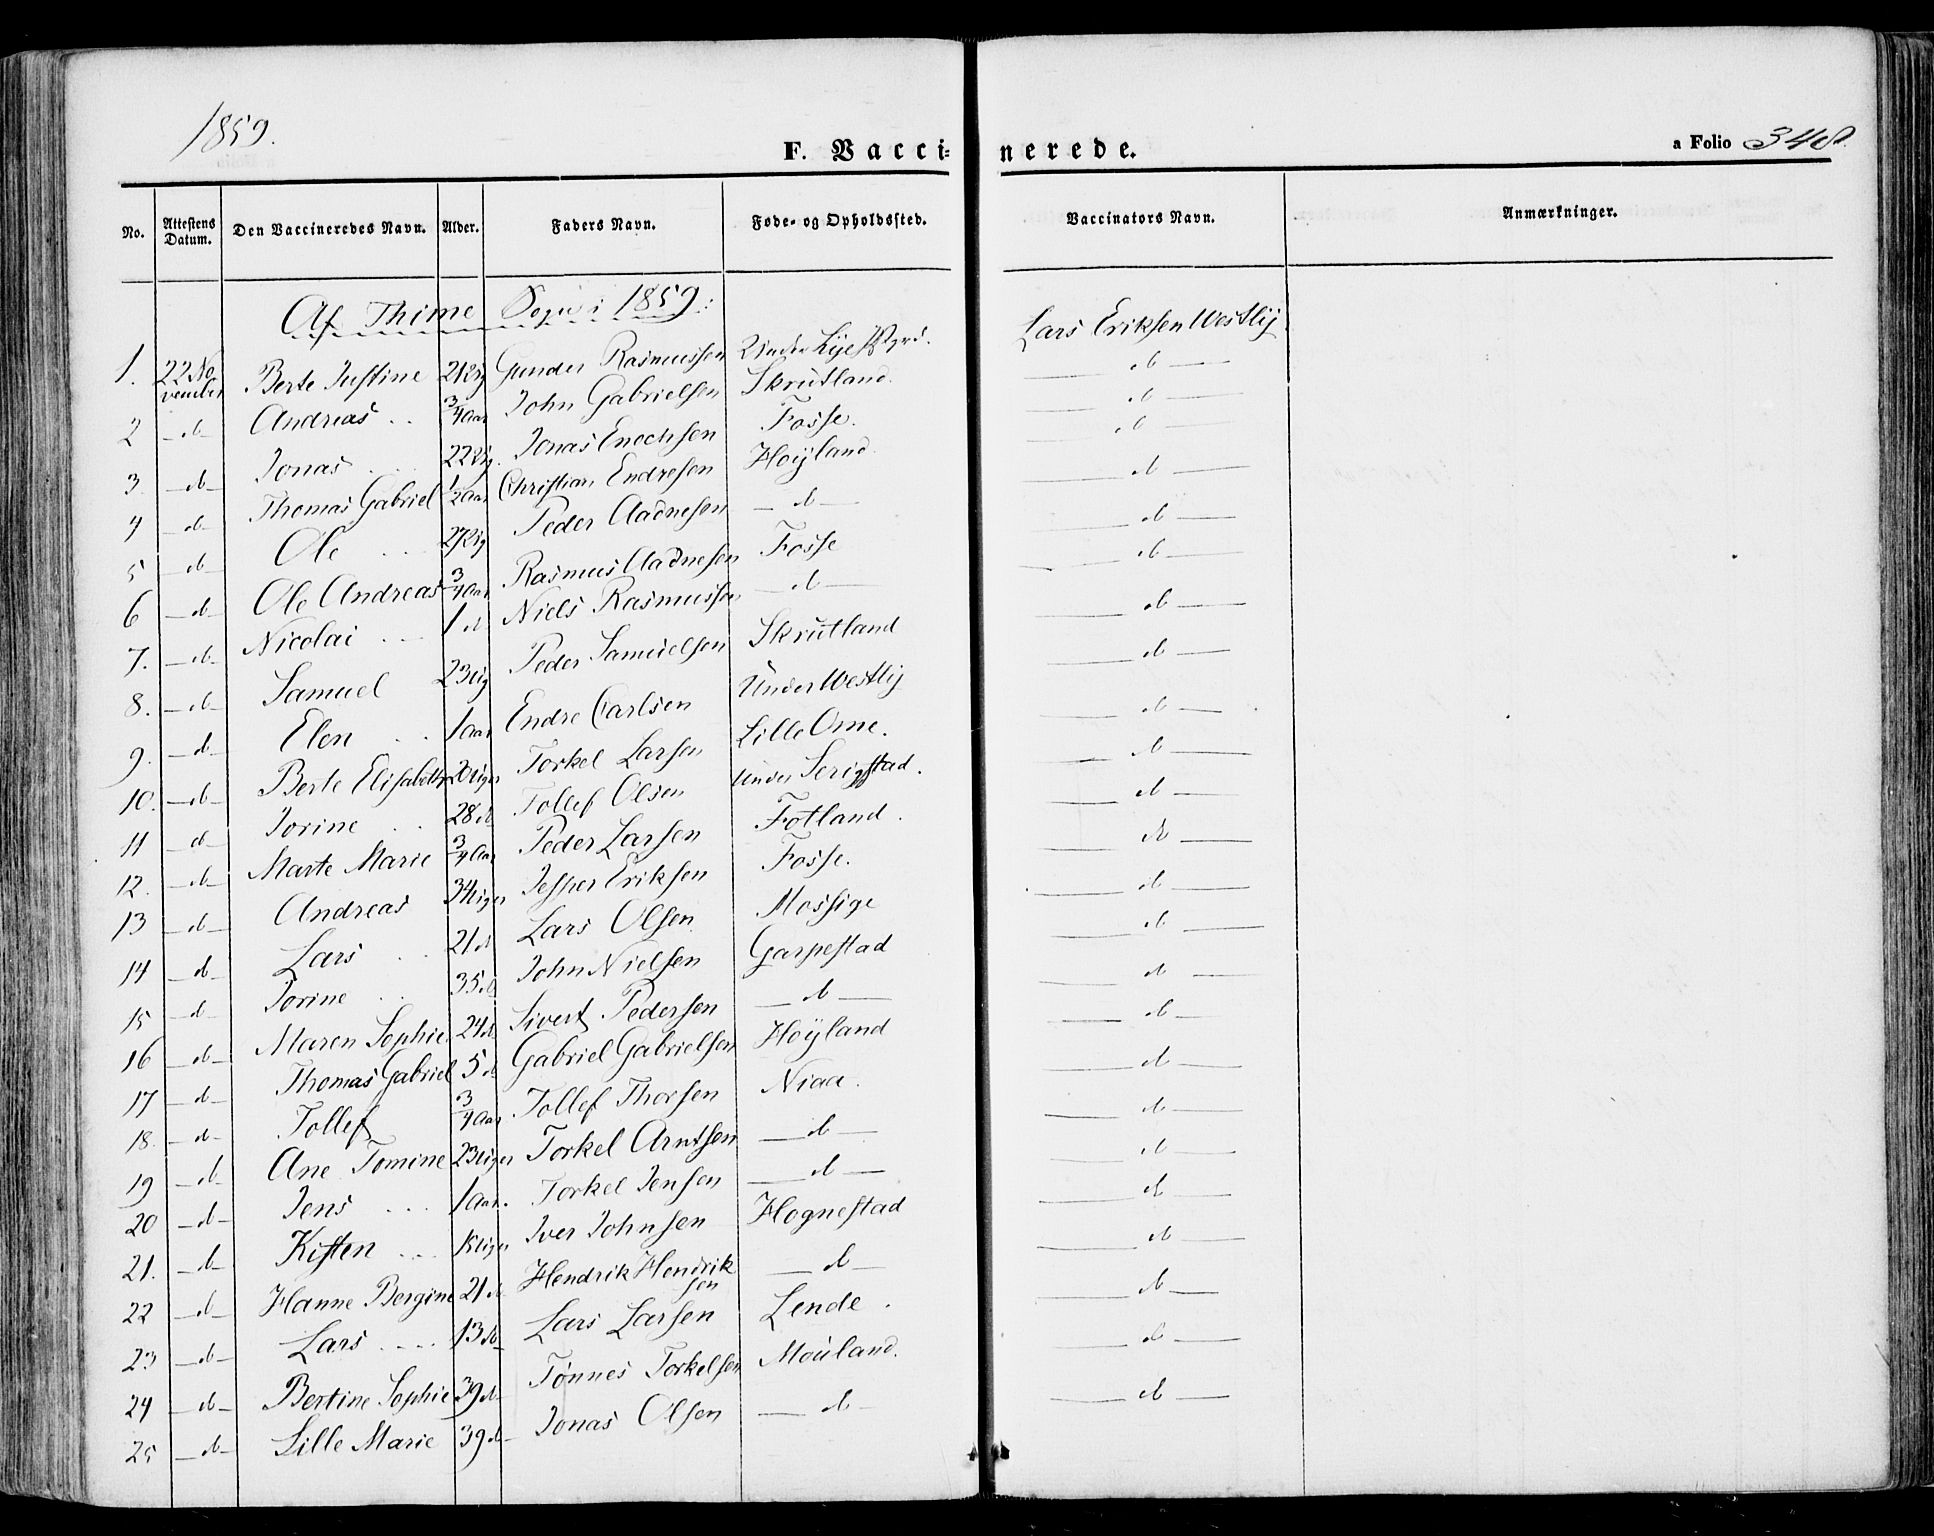 1859.
F. Vaccinerede.
a Folio 348
No. Attestens Datum. Den Vaccineredes Navn. Alder. Faders Navn. Føde- og Opholdssted. Vaccinators Navn. Anmærkninger.
Af Thime Sogn i 1859:
1. 22 November Berte Justine 21 Ug Gunder Rasmussen Under Lye Lars Eriksen Westlij
2 — d — Andreas 3/4 Aar John Gabrielsen Skrutland. — d —
3. — d — Jonas 22 Ug. Jonas Enochsen Fosse. — d —
4 — d — Thomas Gabriel 1/2 Aar Christian Endresen Høÿland. — d —
5 — d — Ole 27 Ug Peder Aadnesen — d — — d —
6 — d — Ole Andreas 3/4 Aar Rasmus Aadnesen Fosse — d —
7. — d — Nicolai 1 d Niels Rasmussen — d — — d —
8. — d — Samuel 23 Ug Peder Samuelsen Skrutland — d —
9. — d — Elen 1 Aar Endre Carlsen Under Westlij — d —
10. — d — Berte Elisabeth Uger Torkel Larsen Lille Ome. — d —
11 — d — Jorine 28 d Tollef Olsen Under Serigstad. — d —
12. — d — Marte Marie 3/4 Aar Peder Larsen Fotland. — d —
13 — d — Andreas 34 Uger Jesper Eriksen Fosse. — d —
14 — d — Lars 21 d Lars Olsen Mossige — d —
15 — d — Jorine 35 d John Nielsen Garpestad — d —
16 — d — Maren Sophie 24 d Sivert Pedersen — d — — d —
17 — d — Thomas Gabriel 5 d Gabriel Gabrielsen Høÿland — d —
18. — d — Tollef 3/4 Aar Tollef Thorsen Niaa. — d —
19 — d — Ane Tomine 23 Uger Torkel Arntsen — d — — d —
20 — d — Jens 1 Aar. Torkel Jensen — d — — d —
21. — d — Kisten Uger Iver Johnsen Hognestad — d —
22 — d — Hanne Bergine 21 d Hendrik Hendriksen — d — — d —
23 — d — Lars 13 d Lars Larsen Lende. — d —
24 — d — Bertine Sophie 39 d Tønnes Torkelsen Mauland. — d —
25 — d — Lille Marie 39 d Jonas Olsen — d — — d —